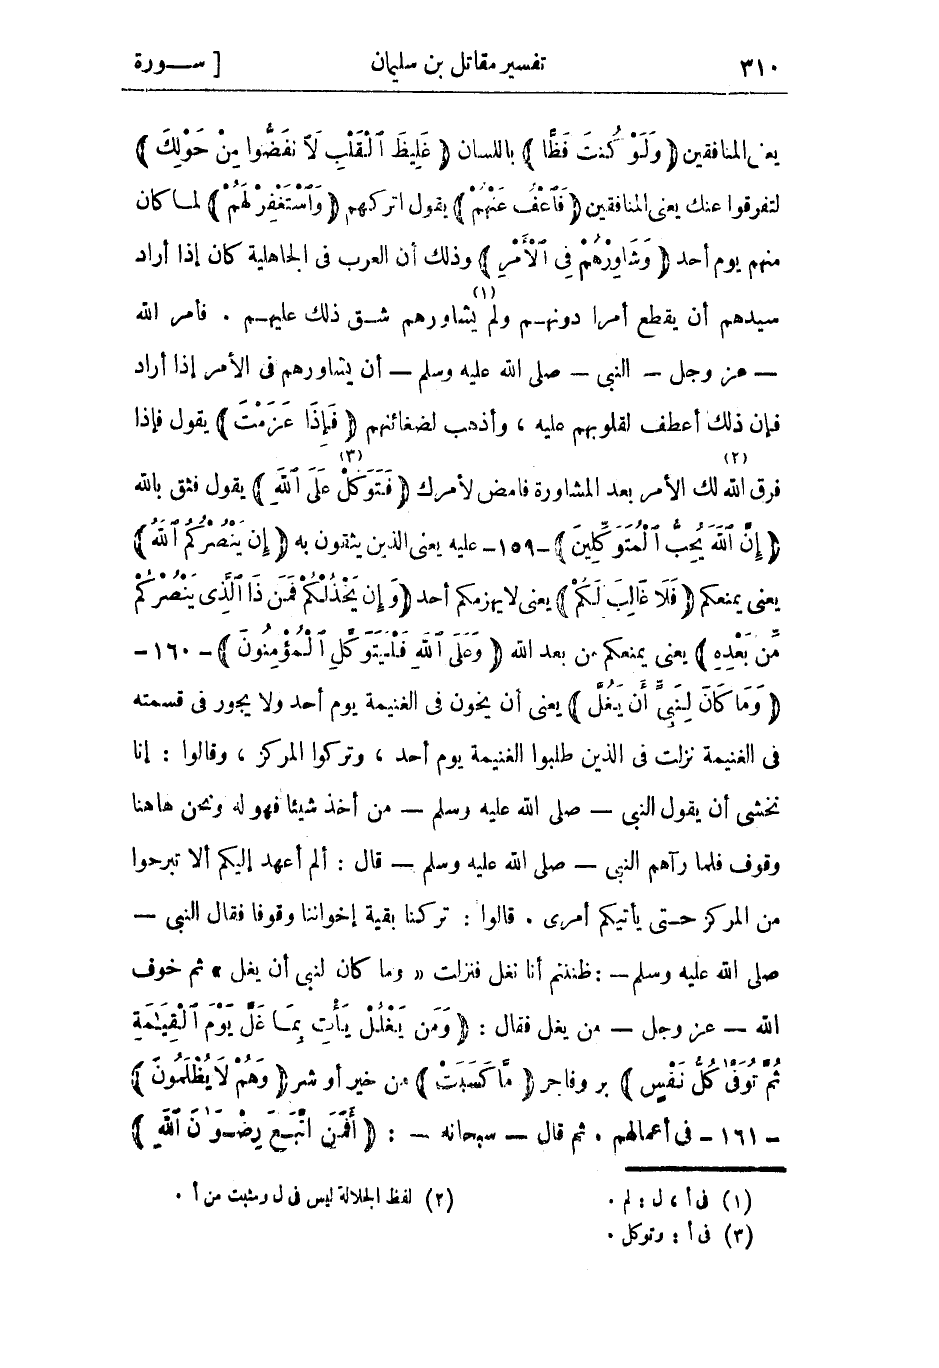 ٣١٠ تفسير مقاتل بن سليمان [ سـورة
يعنى المنافقين ﴿ وَلَوْ كُنتَ فَظًّا ﴾ باللسان ﴿ غَلِيظَ ٱلْقَلْبِ لَٱنفَضُّوا مِنْ حَوْلِكَ ﴾
لتفرقوا عنك يعنى المنافقين ﴿ فَٱعْفُ عَنْهُمْ ﴾ يقول اتركهم ﴿ وَٱسْتَغْفِرْ لَهُمْ ﴾ لما كان
منهم يوم أحد ﴿ وَشَاوِرْهُمْ فِى ٱلْأَمْرِ ﴾ وذلك أن العرب فى الجاهلية كان إذا أراد
سيدهم أن يقطع أمرا دونهم ولم (١) يشاورهم شق ذلك عليهم . فأمر الله
— عز وجل — النبى — صلى الله عليه وسلم — أن يشاورهم فى الأمر إذا أراد
فإن ذلك أعطف لقلوبهم عليه ، وأذهب لضغائنهم ﴿ فَإِذَا عَزَمْتَ ﴾ يقول فإذا
فرق الله (٢) لك الأمر بعد المشاورة فامض لأمرك ﴿ فَتَوَكَّلْ (٣) عَلَى ٱللَّهِ ﴾ يقول فثق بالله
﴿ إِنَّ ٱللَّهَ يُحِبُّ ٱلْمُتَوَكِّلِينَ ﴾ -١٥٩- عليه يعنى الذين يثقون به ﴿ إِن يَنْصُرْكُمُ ٱللَّهُ ﴾
يعنى يمنعكم ﴿ فَلَا غَالِبَ لَكُمْ ﴾ يعنى لايهزمكم أحد ﴿ وَإِن يَخْذُلْكُمْ فَمَن ذَا ٱلَّذِى يَنْصُرُكُمْ
مِّن بَعْدِهِ ﴾ يعنى يمنعكم من بعد الله ﴿ وَعَلَى ٱللَّهِ فَلْيَتَوَكَّلِ ٱلْمُؤْمِنُونَ ﴾ - ١٦٠ -
﴿ وَمَا كَانَ لِنَبِىٍّ أَن يَغُلَّ ﴾ يعنى أن يخون فى الغنيمة يوم أحد ولا يجور فى قسمته
فى الغنيمة نزلت فى الذين طلبوا الغنيمة يوم أحد ، وتركوا المركز ، وقالوا : إنا
نخشى أن يقول النبى — صلى الله عليه وسلم — من أخذ شيئا فهو له ونحن هاهنا
وقوف فلما رآهم النبى — صلى الله عليه وسلم — قال : ألم أعهد إليكم ألا تبرحوا
من المركز حتى يأتيكم أمرى . قالوا : تركنا بقية إخواننا وقوفا فقال النبى —
صلى الله عليه وسلم— : ظننتم أنا نغل فنزلت « وما كان لنبى أن يغل » ثم خوف
الله — عز وجل — من يغل فقال : ﴿ وَمَن يَغْلُلْ يَأْتِ بِمَا غَلَّ يَوْمَ ٱلْقِيَٰمَةِ
ثُمَّ تُوَفَّىٰ كُلُّ نَفْسٍ ﴾ بر وفاجر ﴿ مَّا كَسَبَتْ ﴾ من خير أو شر ﴿ وَهُمْ لَا يُظْلَمُونَ ﴾
- ١٦١ - فى أعمالهم . ثم قال — سبحانه — : ﴿ أَفَمَنِ ٱتَّبَعَ رِضْوَٰنَ ٱللَّهِ ﴾
(١) فى أ ، ل : لم . (٢) لفظ الجلالة ليس فى ل ومثبت من أ .
(٣) فى أ : وتوكل .